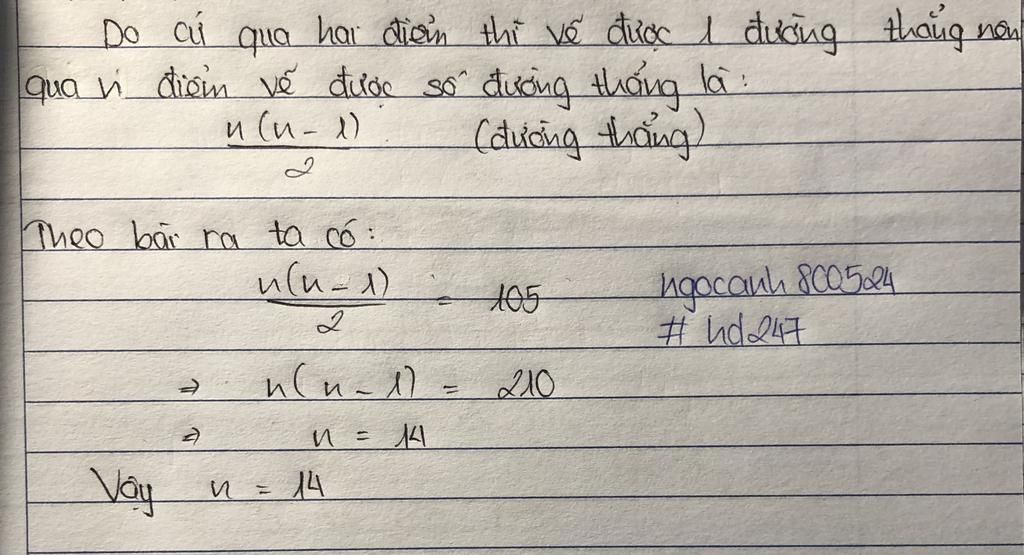 Do cứ qua hai điểm thì vẽ được 1 đường thẳng nên
qua n điểm vẽ được số đường thẳng là:
n(n-1)/2 (đường thẳng)
Theo bài ra ta có:
n(n-1)/2 = 105
ngocanh800524
# hd247
⇒ n(n-1) = 210
⇒ n = 14
Vậy n = 14